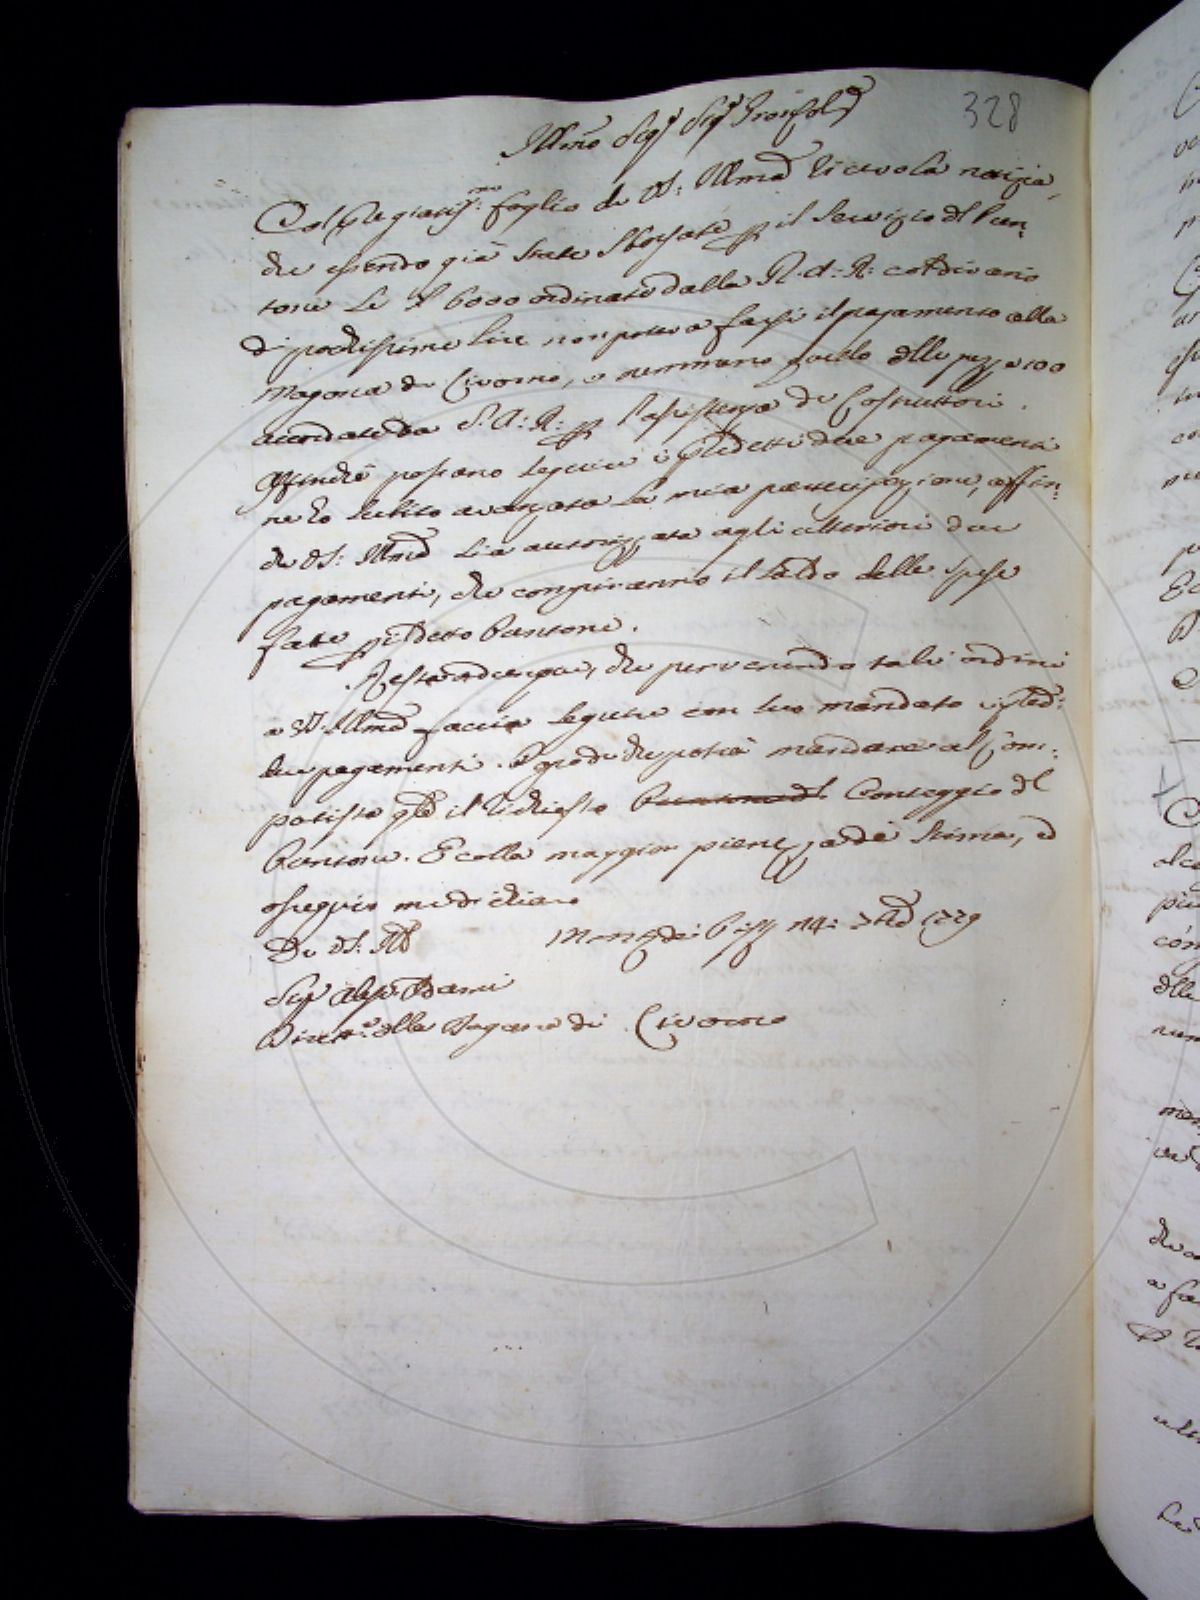 328
Illmo Sigr Sigr Prone Col
Col pregiatissmo foglio di VS: Illma ricevo la notizia,
che essendo già state sborsate p il servizio del Pon-
tone le £ 6000 ordinate dalla R. A: R: col divario
di pochissime lire non poteva farsi il pagamento alla
Magona di Livorno, e nemmeno quello delle pezze 100
accordate da S. A: R: p l'assistenza de Costruttori.
Affinchè possano seguire i pdetti due pagamenti
ne ho subito avanzata la mia partecipazione, affin-
che VS: Illma sia autorizzata agli ulteriori due
pagamenti, che compiranno il saldo delle spese
fate p detto Pontone.
Resta adunque, che pervenendo tali ordini
a VS. Illma faccia seguire con suo mandato i pred:
due pagamenti. E poi che potrà mandare al Com-
putista il richiesto Conteggio del
Pontone. E colla maggior pienezza di stima, ed
ossequio mi dichiaro
Di VS: Ill
Pisa 14: 1779
Sigr Dami
Dirett.e della Magona di Livorno